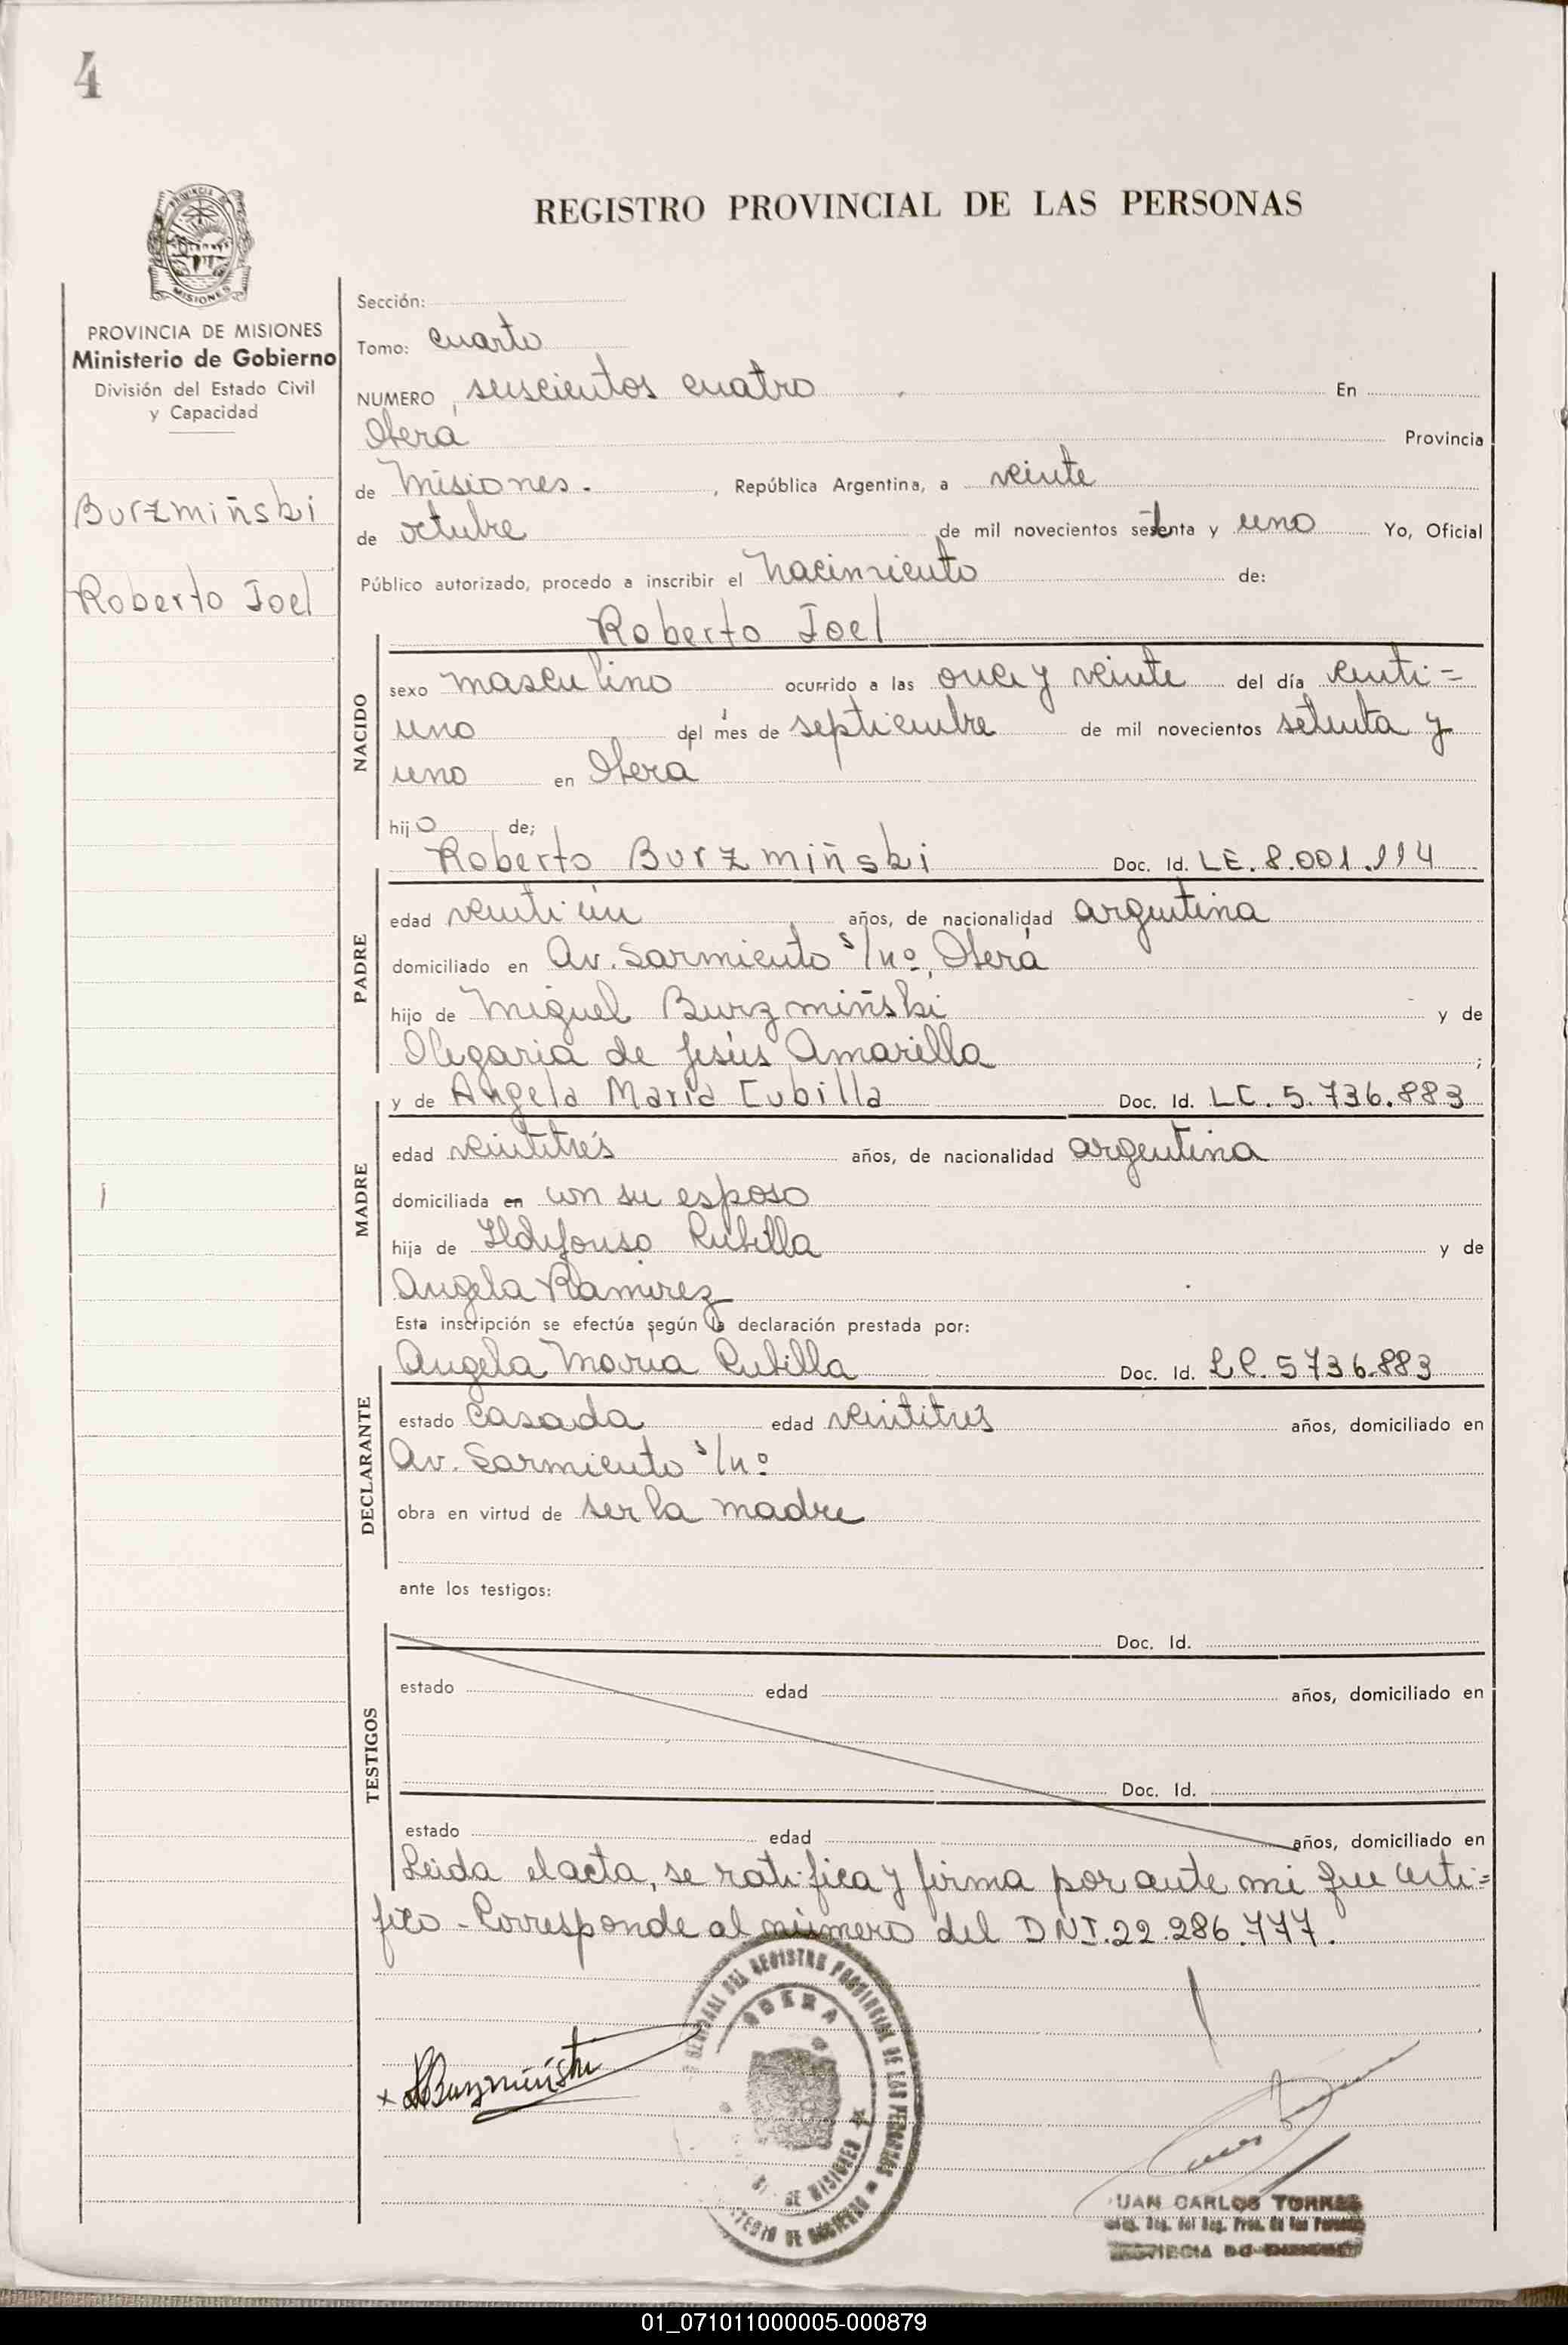 4
REGISTRO PROVINCIAL DE LAS PERSONAS
PROVINCIA
MISIONES
PROVINCIA DE MISIONES
Ministerio de Gobierno
División del Estado Civil
y Capacidad
Burzmiñski
Roberto Joel
Sección:
Tomo: cuarto
NUMERO seiscientos cuatro En
Oberá Provincia
de Misiones.- , República Argentina, a veinte
de octubre de mil novecientos setenta y uno Yo, Oficial
Público autorizado, procedo a inscribir el nacimiento de:
Roberto Joel
NACIDO
sexo masculino ocurrido a las once y veinte del día veinti=
uno del mes de septiembre de mil novecientos setenta y
uno en Oberá
hijo de;
Roberto Burzmiñski Doc. Id. LE. 8.001.114
PADRE
edad veintiún años, de nacionalidad argentina
domiciliado en Av. Sarmiento s/nº, Oberá
hijo de Miguel Burzmiñski y de
Olegaria de Jesús Amarilla ;
y de Angela Maria Cubilla Doc. Id. LC. 5.736.883
MADRE
edad veintitrés años, de nacionalidad argentina
domiciliada en con su esposo
hija de Ildefonso Cubilla y de
Angela Ramirez
Esta inscripción se efectúa según la declaración prestada por:
Angela Maria Cubilla Doc. Id. LC. 5736.883
DECLARANTE
estado casada edad veintitrés años, domiciliado en
Av. Sarmiento s/nº
obra en virtud de ser la madre
ante los testigos:
TESTIGOS
Doc. Id.
estado edad años, domiciliado en
Doc. Id.
estado edad años, domiciliado en
Leida el acta, se ratifica y firma por ante mi que certi=
fico - Corresponde al número del DNI. 22.286.777.
DEL REGISTRO PROVINCIAL DE LAS PERSONAS
OBERA
DE MISIONES
x Burzmiñski
JUAN CARLOS TORRES
01_071011000005-000879